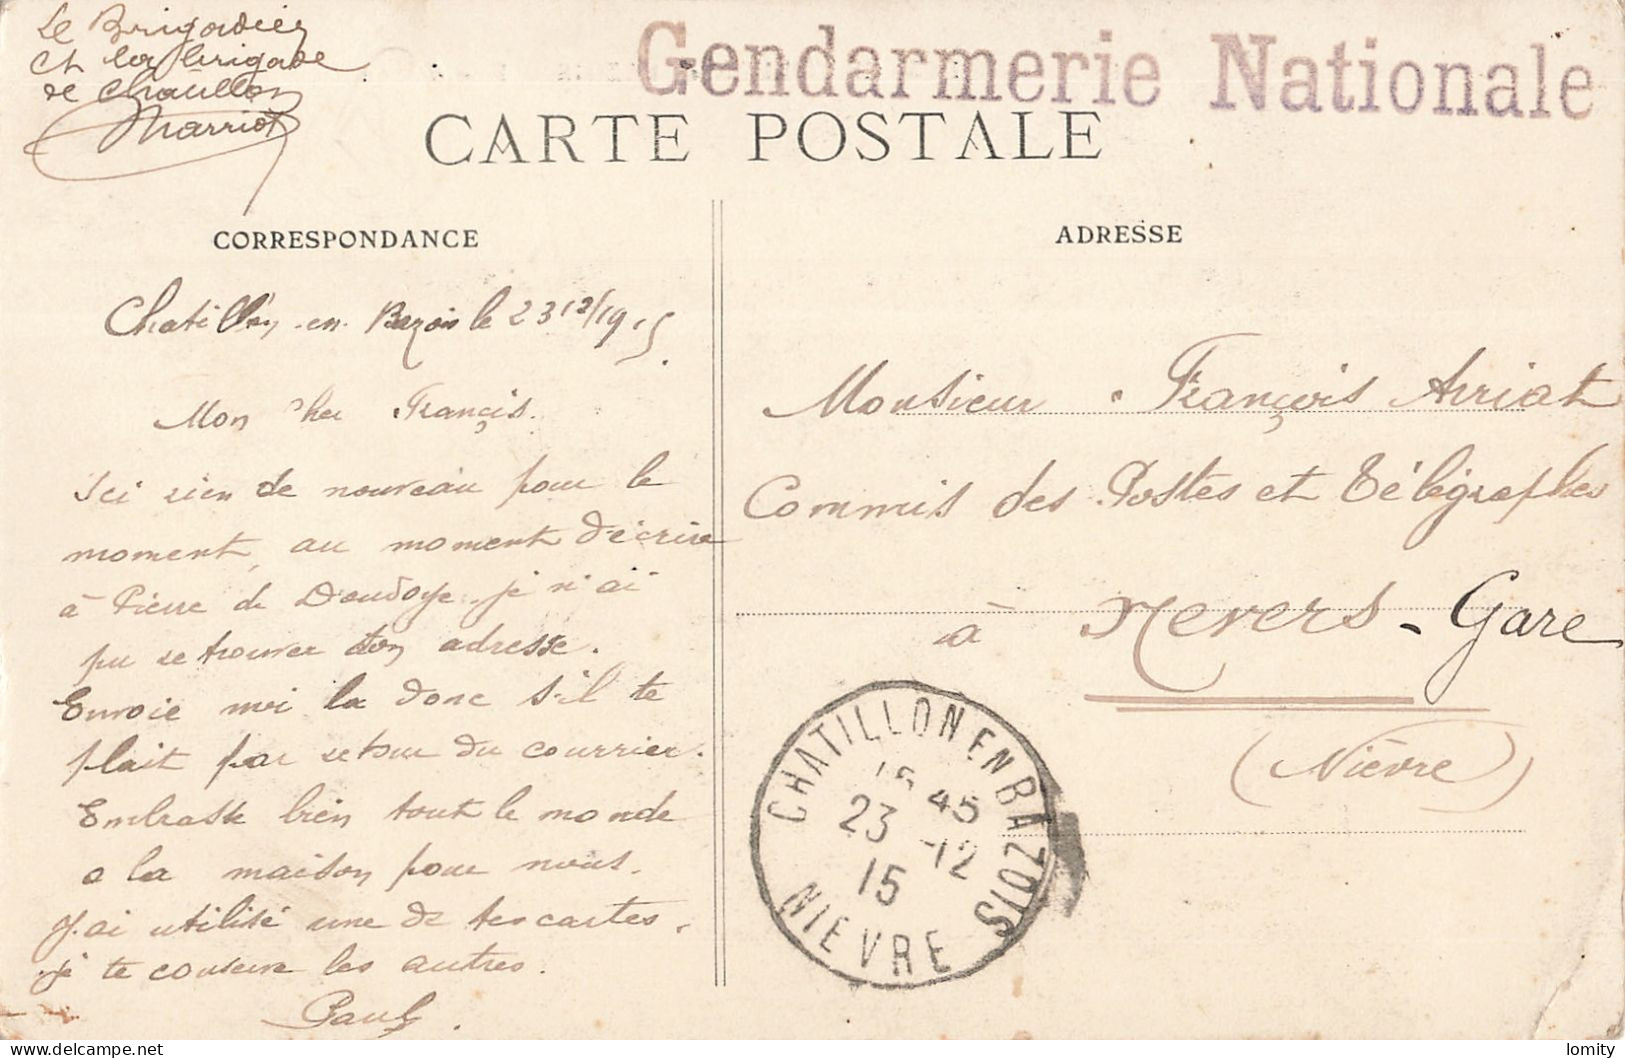 Le Brigadier
et la brigade
de Chatillon
Marriot
Gendarmerie Nationale
CARTE POSTALE
CORRESPONDANCE
ADRESSE
Chatillon-en-Bazois le 23 12/1915
Mon cher Francis.
Ici rien de nouveau pour le
moment, au moment d'écrire
à Pierre de je n'ai
pu retrouver ton adresse.
Envoie moi la donc s'il te
plait par retour du courrier.
Embrasse bien tout le monde
a la maison pour nous.
J'ai utilisé une de tes cartes,
je te conserve les autres.
Paul.
Monsieur François Arriat
Commis des Postes et Télégraphes
à Nevers-Gare
(Nièvre)
CHATILLON EN BAZOIS
45
23 -12
15
NIEVRE
lomity